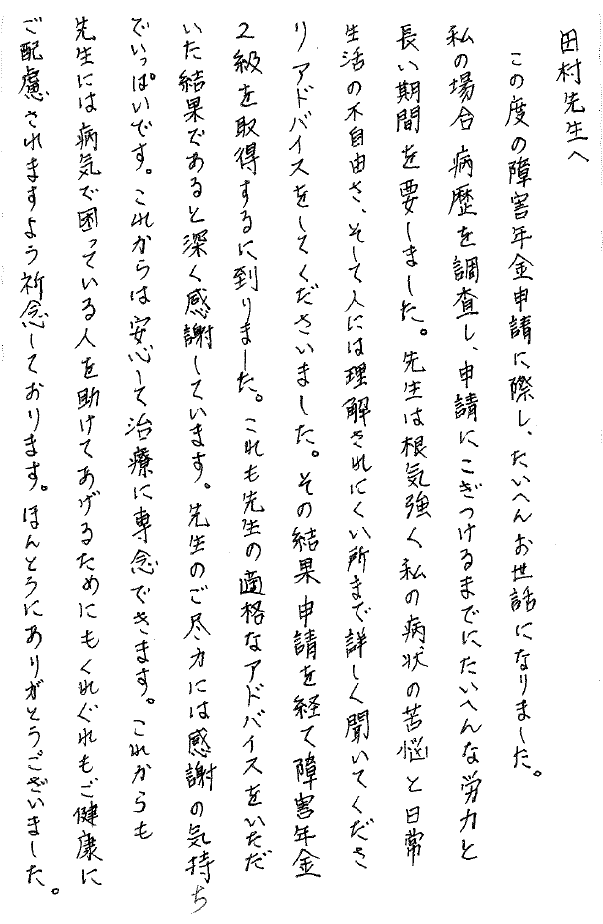 田村先生へ
この度の障害年金申請に際し、たいへんお世話になりました。
私の場合 病歴を調査し、申請にこぎつけるまでにたいへんな労力と
長い期間を要しました。先生は根気強く私の病状の苦悩と日常
生活の不自由さ、そして人には理解されにくい所まで詳しく聞いてくださ
り アドバイスをしてくださいました。その結果 申請を経て障害年金
2級を取得するに到りました。これも先生の適格なアドバイスをいただ
いた結果であると深く感謝しています。先生のご尽力には感謝の気持ち
でいっぱいです。これからは安心して治療に専念できます。これからも
先生には病気で困っている人を助けてあげるためにもくれぐれもご健康に
ご配慮されますよう祈念しております。ほんとうにありがとうございました。